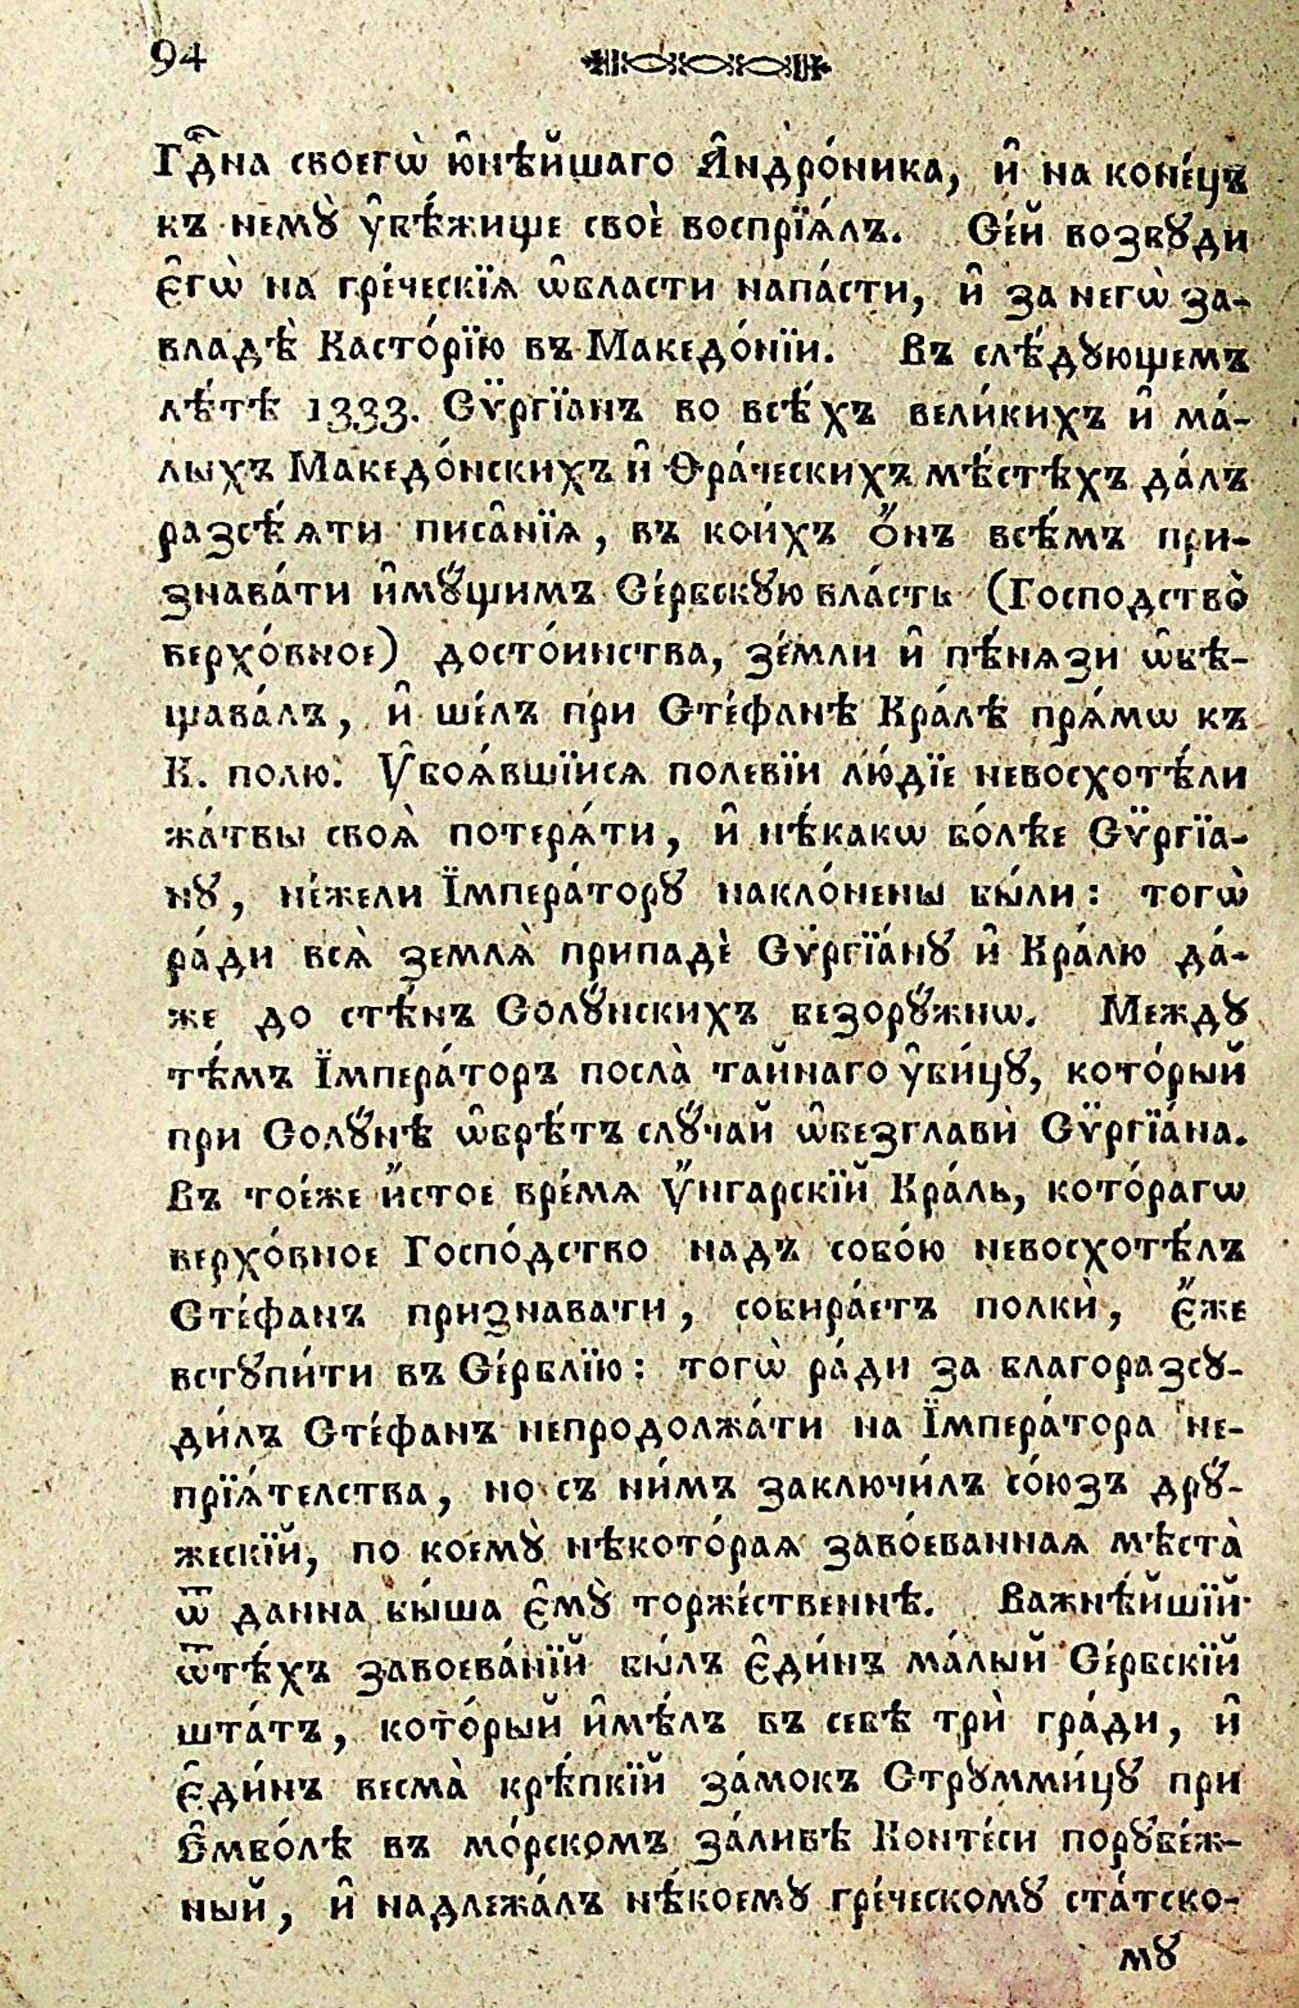 94
Гдⷭ҇на своегѡ̀ ю҆нѣ́йшаго А҆ндро́ника, и҆ на коне́цъ
къ немꙋ̀ ᲂу҆бѣ́жище своѐ воспрїѧ́лъ. Се́й возбꙋди
є҆гѡ̀ на гре́ческїѧ ѡ҆бласти напа́сти, и҆ за негѡ̀ за-
владѣ̀ Касто́рїю въ Македо́нїи. Въ слѣ́дꙋющемъ
лѣ́тѣ 1333. Сѷргїанъ во всѣ́хъ вели́кихъ и҆ ма́-
лыхъ Македо́нскихъ и҆ Ѳра́ческихъ мѣ́стѣхъ да́лъ
разсѣ́ѧти писа̑нїѧ, въ кои́хъ ѻ҆́нъ всѣ́мъ при-
знава́ти и҆мꙋ́щимъ Се́рбскꙋю вла́сть (Господство̀
верхо́вное) досто́инства, зе́мли и҆ пѣ́нѧзи ѡ҆бѣ-
щава́лъ, и҆ ше́лъ при Сте́фанѣ Кра́лѣ прѧ́мѡ къ
К. полю. Ꙋ҆боѧ́вшїисѧ полевїи лю́дїе невосхотѣ́ли
жа́твы своѧ̀ потерѧ́ти, и҆ нѣ́какѡ бо́лѣе Сѷргїа-
нꙋ, не́жели Їмпера́торꙋ накло́нены бы́ли: тогѡ̀
ра́ди всѧ̀ землѧ̀ припадѐ Сѷргїа́нꙋ и҆ Кра́лю да́-
же до стѣ́нъ Солꙋ́нскихъ безорꙋ́жнѡ. Междꙋ
тѣ́мъ Їмпера́торъ посла̀ тайнаго ᲂу҆би́цꙋ, кото́рый
при Солꙋ́нѣ ѡ҆брѣ́тъ слꙋ́чай ѡ҆безглавѝ Сѷргїа́на.
Въ тое́же и҆́стое вре́мѧ Ꙋ҆́нгарскїй Кра́ль, кото́рагѡ
верхо́вное Госпо́дство надъ собо́ю невосхотѣ́лъ
Сте́фанъ признавати, собира́етъ полкѝ, є҆́же
встꙋпи́ти въ Се́рблїю: тогѡ̀ ра́ди за благоразсꙋ-
ди́лъ Сте́фанъ непродолжа́ти на Їмпера́тора не-
прїѧ́телства, но съ ни́мъ заключи́лъ со́юзъ дрꙋ́-
жескїй, по коемꙋ̀ нѣкото́раѧ заво́еваннаѧ мѣста̀
ѿ данна бы́ша є҆мꙋ̀ торже́ственнѣ. Важнѣ́йшїй
ѿтѣ́хъ завоева́нїй бы́лъ є҆ди́нъ ма́лый Се́рбскїй
шта́тъ, кото́рый и҆мѣ́лъ въ себѣ трѝ гра́ди, и҆
є҆ди́нъ весма̀ крѣ́пкїй за́мокъ Стрꙋмми́цꙋ при
Є҆мбо́лѣ въ мо́рскомъ за́ливѣ Конте́си порꙋбе́ж-
ный, и҆ надлежа́лъ нѣ́коемꙋ гре́ческомꙋ ста́тско-
мꙋ